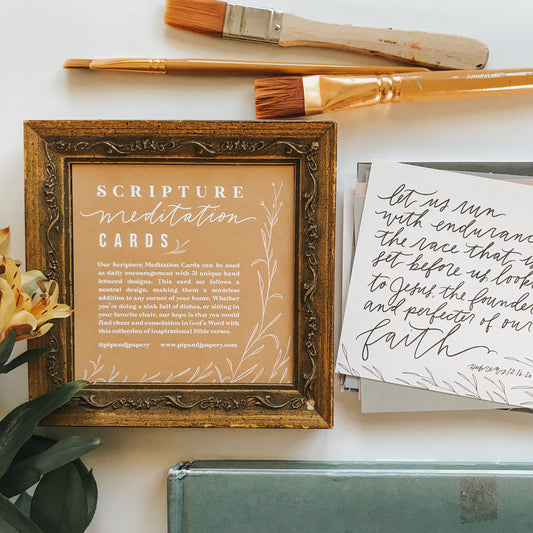 SCRIPTURE
meditation
CARDS
Our Scripture Meditation Cards can be used
as daily encouragement with 31 unique hand
lettered designs. This card set follows a
neutral design, making them a seamless
addition to any corner of your home. Whether
you're doing a sink full of dishes, or sitting in
your favorite chair, our hope is that you would
find cheer and consolation in God's Word with
this collection of inspirational Bible verses.
@pipandjpapery www.pipandjpapery.com
let us run
with endurance
the race that is
set before us, look
to Jesus, the founder
and perfecter of our
faith